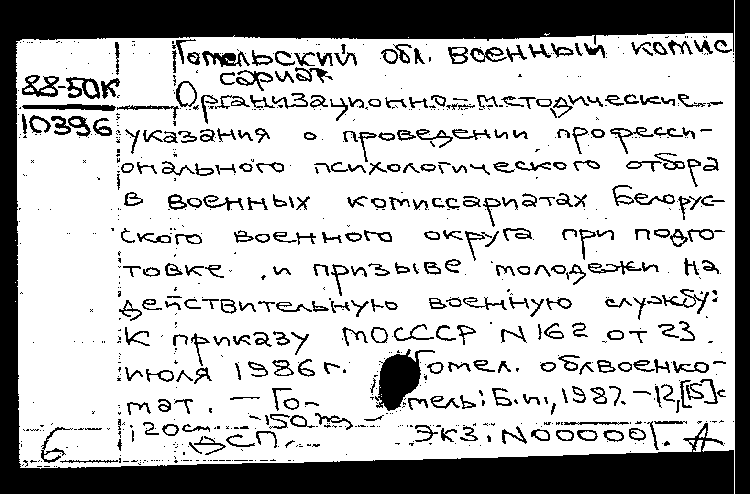 Гомельский обл. военный комис
сариат
88-50К
10396
Организационно-методические
указания о проведении професси-
онального психологического отбора
в военных комиссариатах Белорус-
ского военного округа при подго-
товке и призыве молодежи на
действительную военную службу:
К приказу МОСССР N162 от 23
июля 1986г. / Гомел. облвоенко-
мат. — Го- мель: Б.и., 1987. — 12,[5]с
; 20см. — 150
6 ДСП. Экз. N000001. А